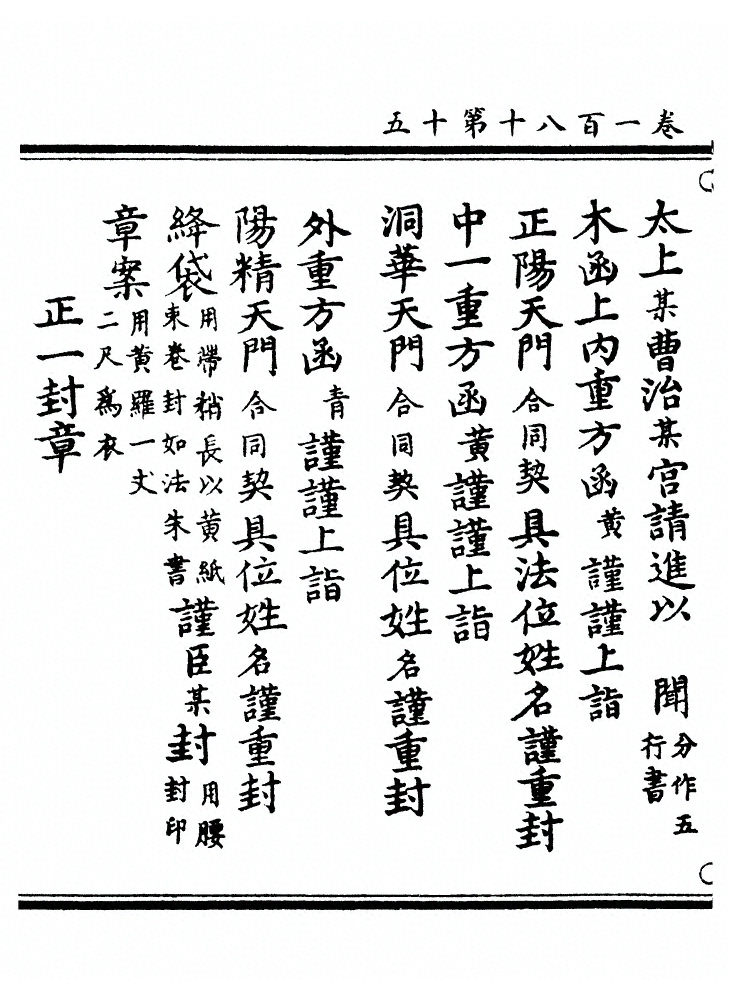 卷一百八十第十五
太上某曹治某宮請進以　聞分作五行書
木函上内重方函黄謹謹上詣
正陽天門合同契具法位姓名謹重封
中一重方函黄謹謹上詣
洞華天門合同契具位姓名謹重封
外重方函青謹謹上詣
陽精天門合同契具位姓名謹重封
絳袋用帶稍長以黄紙束卷封如法朱書謹臣某封用腰封印
章案用黄羅一丈二尺爲衣
正一封章